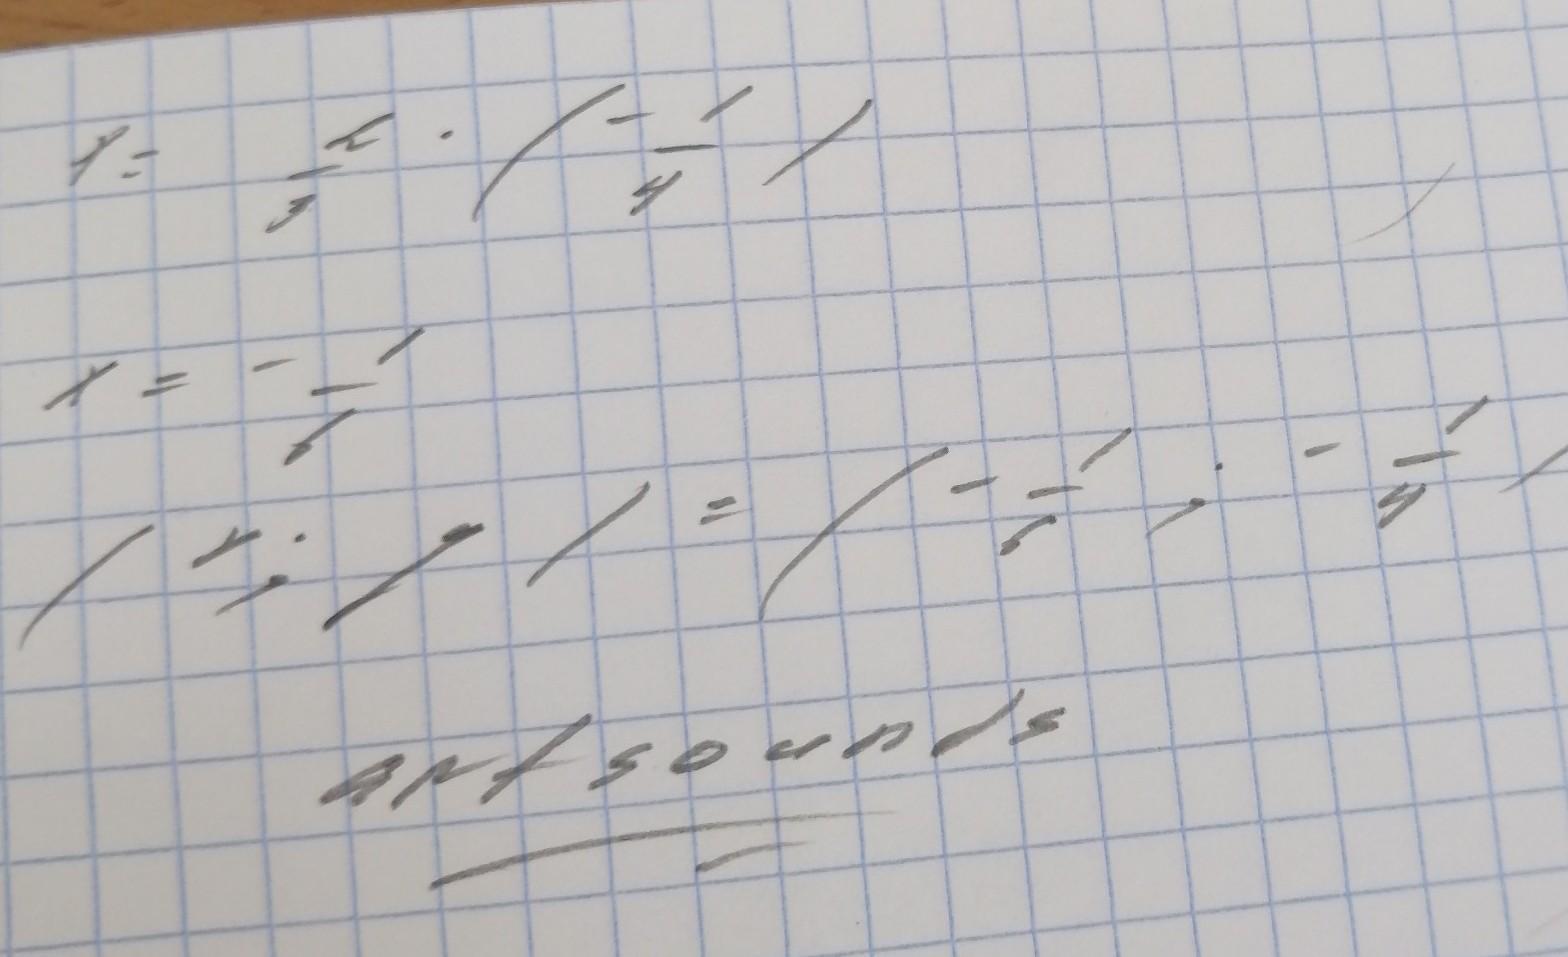 x = 2/3 · (-1/4)
x = -1/6
(x; y) = (-1/6; -1/4)
artsounds